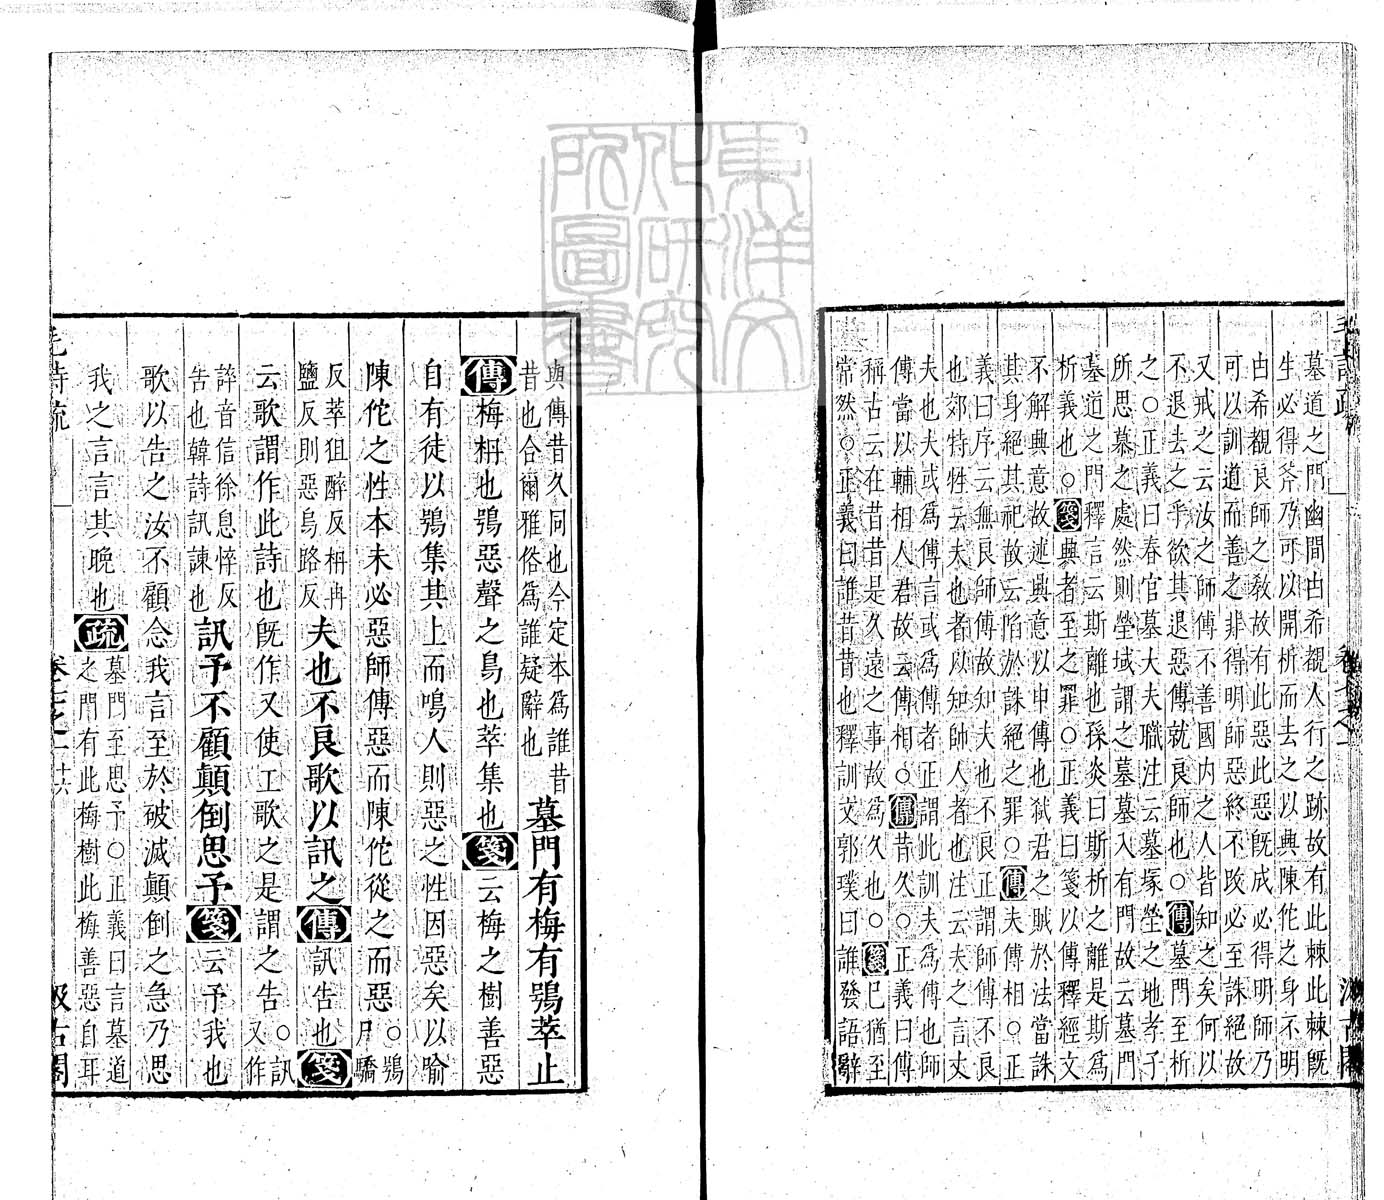 毛詩疏 卷七之一 汲古閣
墓道之門幽閒由希覩人行之跡故有此棘此棘旣
生必得斧乃可以開析而去之以興陳佗之身不明
由希覩良師之敎故有此惡此惡旣成必得明師乃
可以訓道而善之非得明師惡終不改必至誅絕故
又戒之云汝之師傅不善國內之人皆知之矣何以
不退去之乎欲其退惡傅就良師也○傳墓門至析
之○正義曰春官墓大夫職注云墓塚塋之地孝子
所思慕之處然則塋域謂之墓墓入有門故云墓門
墓道之門釋言云斯離也孫炎曰斯析之離是斯爲
析義也○箋興者至之罪○正義曰箋以傳釋經文
不解興意故述興意以申傳也弑君之賊於法當誅
其身絕其祀故云陷於誅絕之罪○傳夫傅相○正
義曰序云無良師傅故知夫也不良正謂師傅不良
也郊特牲云夫也者以知師人者也注云夫之言丈
夫也夫或爲傅言或爲傅者正謂此訓夫爲傅也師
傅當以輔相人君故云傅相○傳昔久○正義曰傳
稱古云在昔昔是久遠之事故爲久也○箋已猶至
常然○正義曰誰昔昔也釋訓文郭璞曰誰發語辭
與傳昔久同也今定本爲誰昔
昔也合爾雅俗爲誰疑辭也
墓門有梅有鴞萃止
傳梅柟也鴞惡聲之鳥也萃集也箋云梅之樹善惡
自有徒以鴞集其上而鳴人則惡之性因惡矣以喻
陳佗之性本未必惡師傅惡而陳佗從之而惡○鴞
戶驕
反萃狙醉反柟冉
鹽反則惡烏路反
夫也不良歌以訊之傳訊告也箋
云歌謂作此詩也旣作又使工歌之是謂之告○訊
又作
誶音信徐息悴反
告也韓詩訊諫也
訊予不顧顚倒思予箋云予我也
歌以告之汝不顧念我言至於破滅顚倒之急乃思
我之言言其晚也疏墓門至思予○正義曰言墓道
之門有此梅樹此梅善惡自耳
毛詩疏 卷七之一 十六 汲古閣